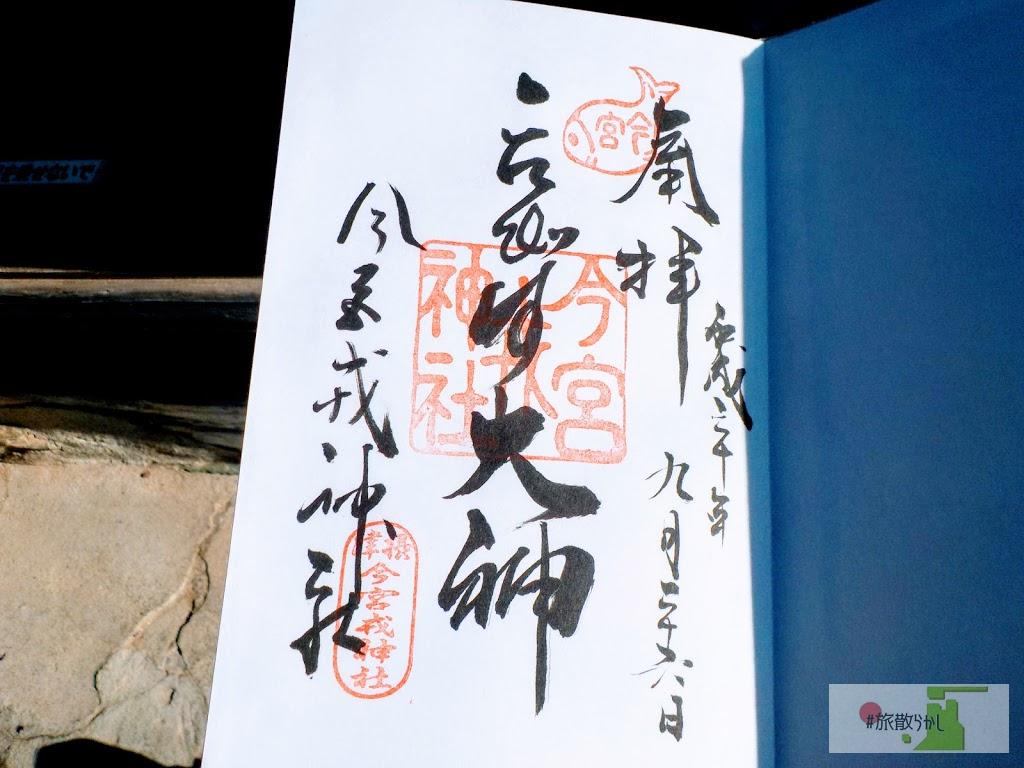 平成三十年
九月二十六日
奉拝
今宮
大神
今宮
神社
今宮戎神社
摂津
今宮戎神社
#旅散らかし